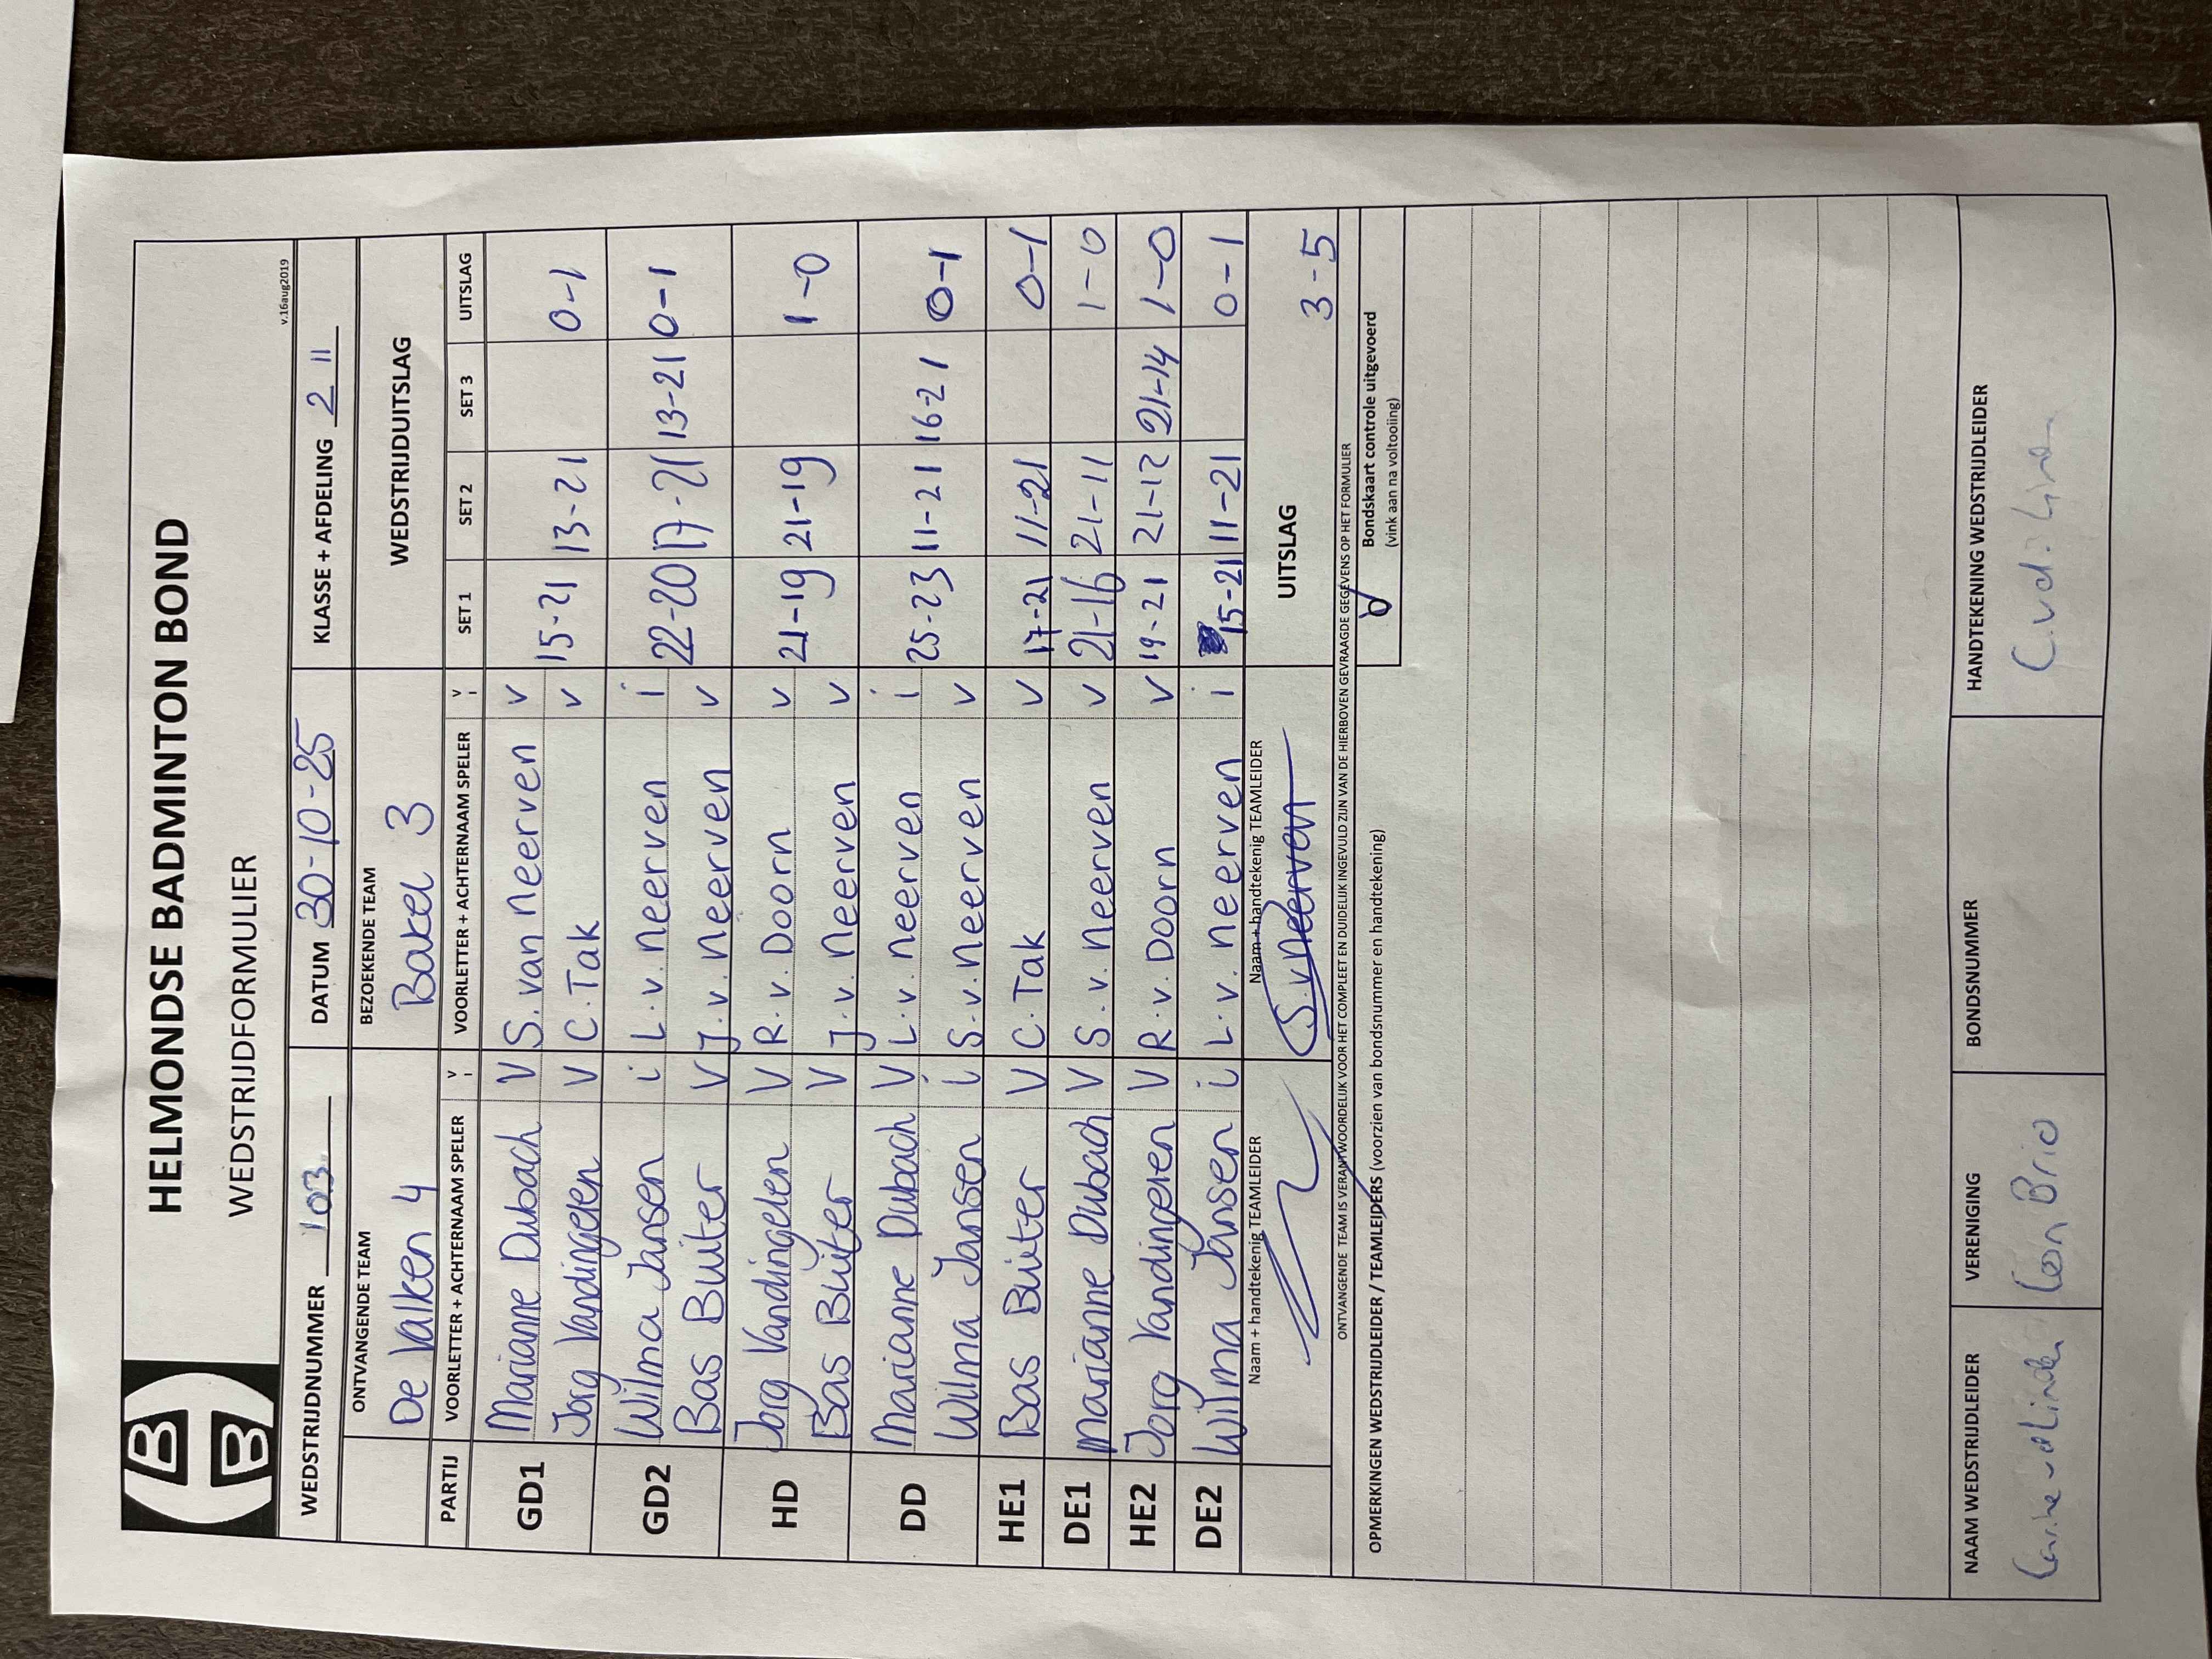 HELMONDSE BADMINTON BOND
WEDSTRIJDFORMULIER
v.16aug2019
WEDSTRIJDNUMMER 103 DATUM 30-10-25 KLASSE + AFDELING 2 11
ONTVANGENDE TEAM BEZOEKENDE TEAM WEDSTRIJDUITSLAG
De Valken 4 Bakel 3
PARTIJ VOORLETTER + ACHTERNAAM SPELER V I VOORLETTER + ACHTERNAAM SPELER V I SET 1 SET 2 SET 3 UITSLAG
GD1 Marianne Dubach V S. van Neerven v
Jorg Vandingelen V C. Tak v 15-21 13-21 0-1
GD2 Wilma Jansen i L. v. Neerven i
Bas Buiter V J. v. Neerven v 22-20 17-21 13-21 0-1
HD Jorg Vandingelen V R. v. Doorn v
Bas Buiter V J. v. Neerven v 21-19 21-19 1-0
DD Marianne Dubach V L. v. Neerven i
Wilma Jansen i S. v. Neerven v 25-23 11-21 16-21 0-1
HE1 Bas Buiter V C. Tak v 17-21 11-21 0-1
DE1 Marianne Dubach V S. v. Neerven v 21-16 21-11 1-0
HE2 Jorg Vandingelen V R. v. Doorn v 19-21 21-12 21-14 1-0
DE2 Wilma Jansen i L. v. Neerven i 15-21 11-21 0-1
Naam + handtekenig TEAMLEIDER Naam + handtekenig TEAMLEIDER UITSLAG 3-5
S. v Neerven
ONTVANGENDE TEAM IS VERANTWOORDELIJK VOOR HET COMPLEET EN DUIDELIJK INGEVULD ZIJN VAN DE HIERBOVEN GEVRAAGDE GEGEVENS OP HET FORMULIER
OPMERKINGEN WEDSTRIJDLEIDER / TEAMLEIDERS (voorzien van bondsnummer en handtekening)
Bondskaart controle uitgevoerd
(vink aan na voltooiing)
NAAM WEDSTRIJDLEIDER VERENIGING BONDSNUMMER HANDTEKENING WEDSTRIJDLEIDER
Con Brio